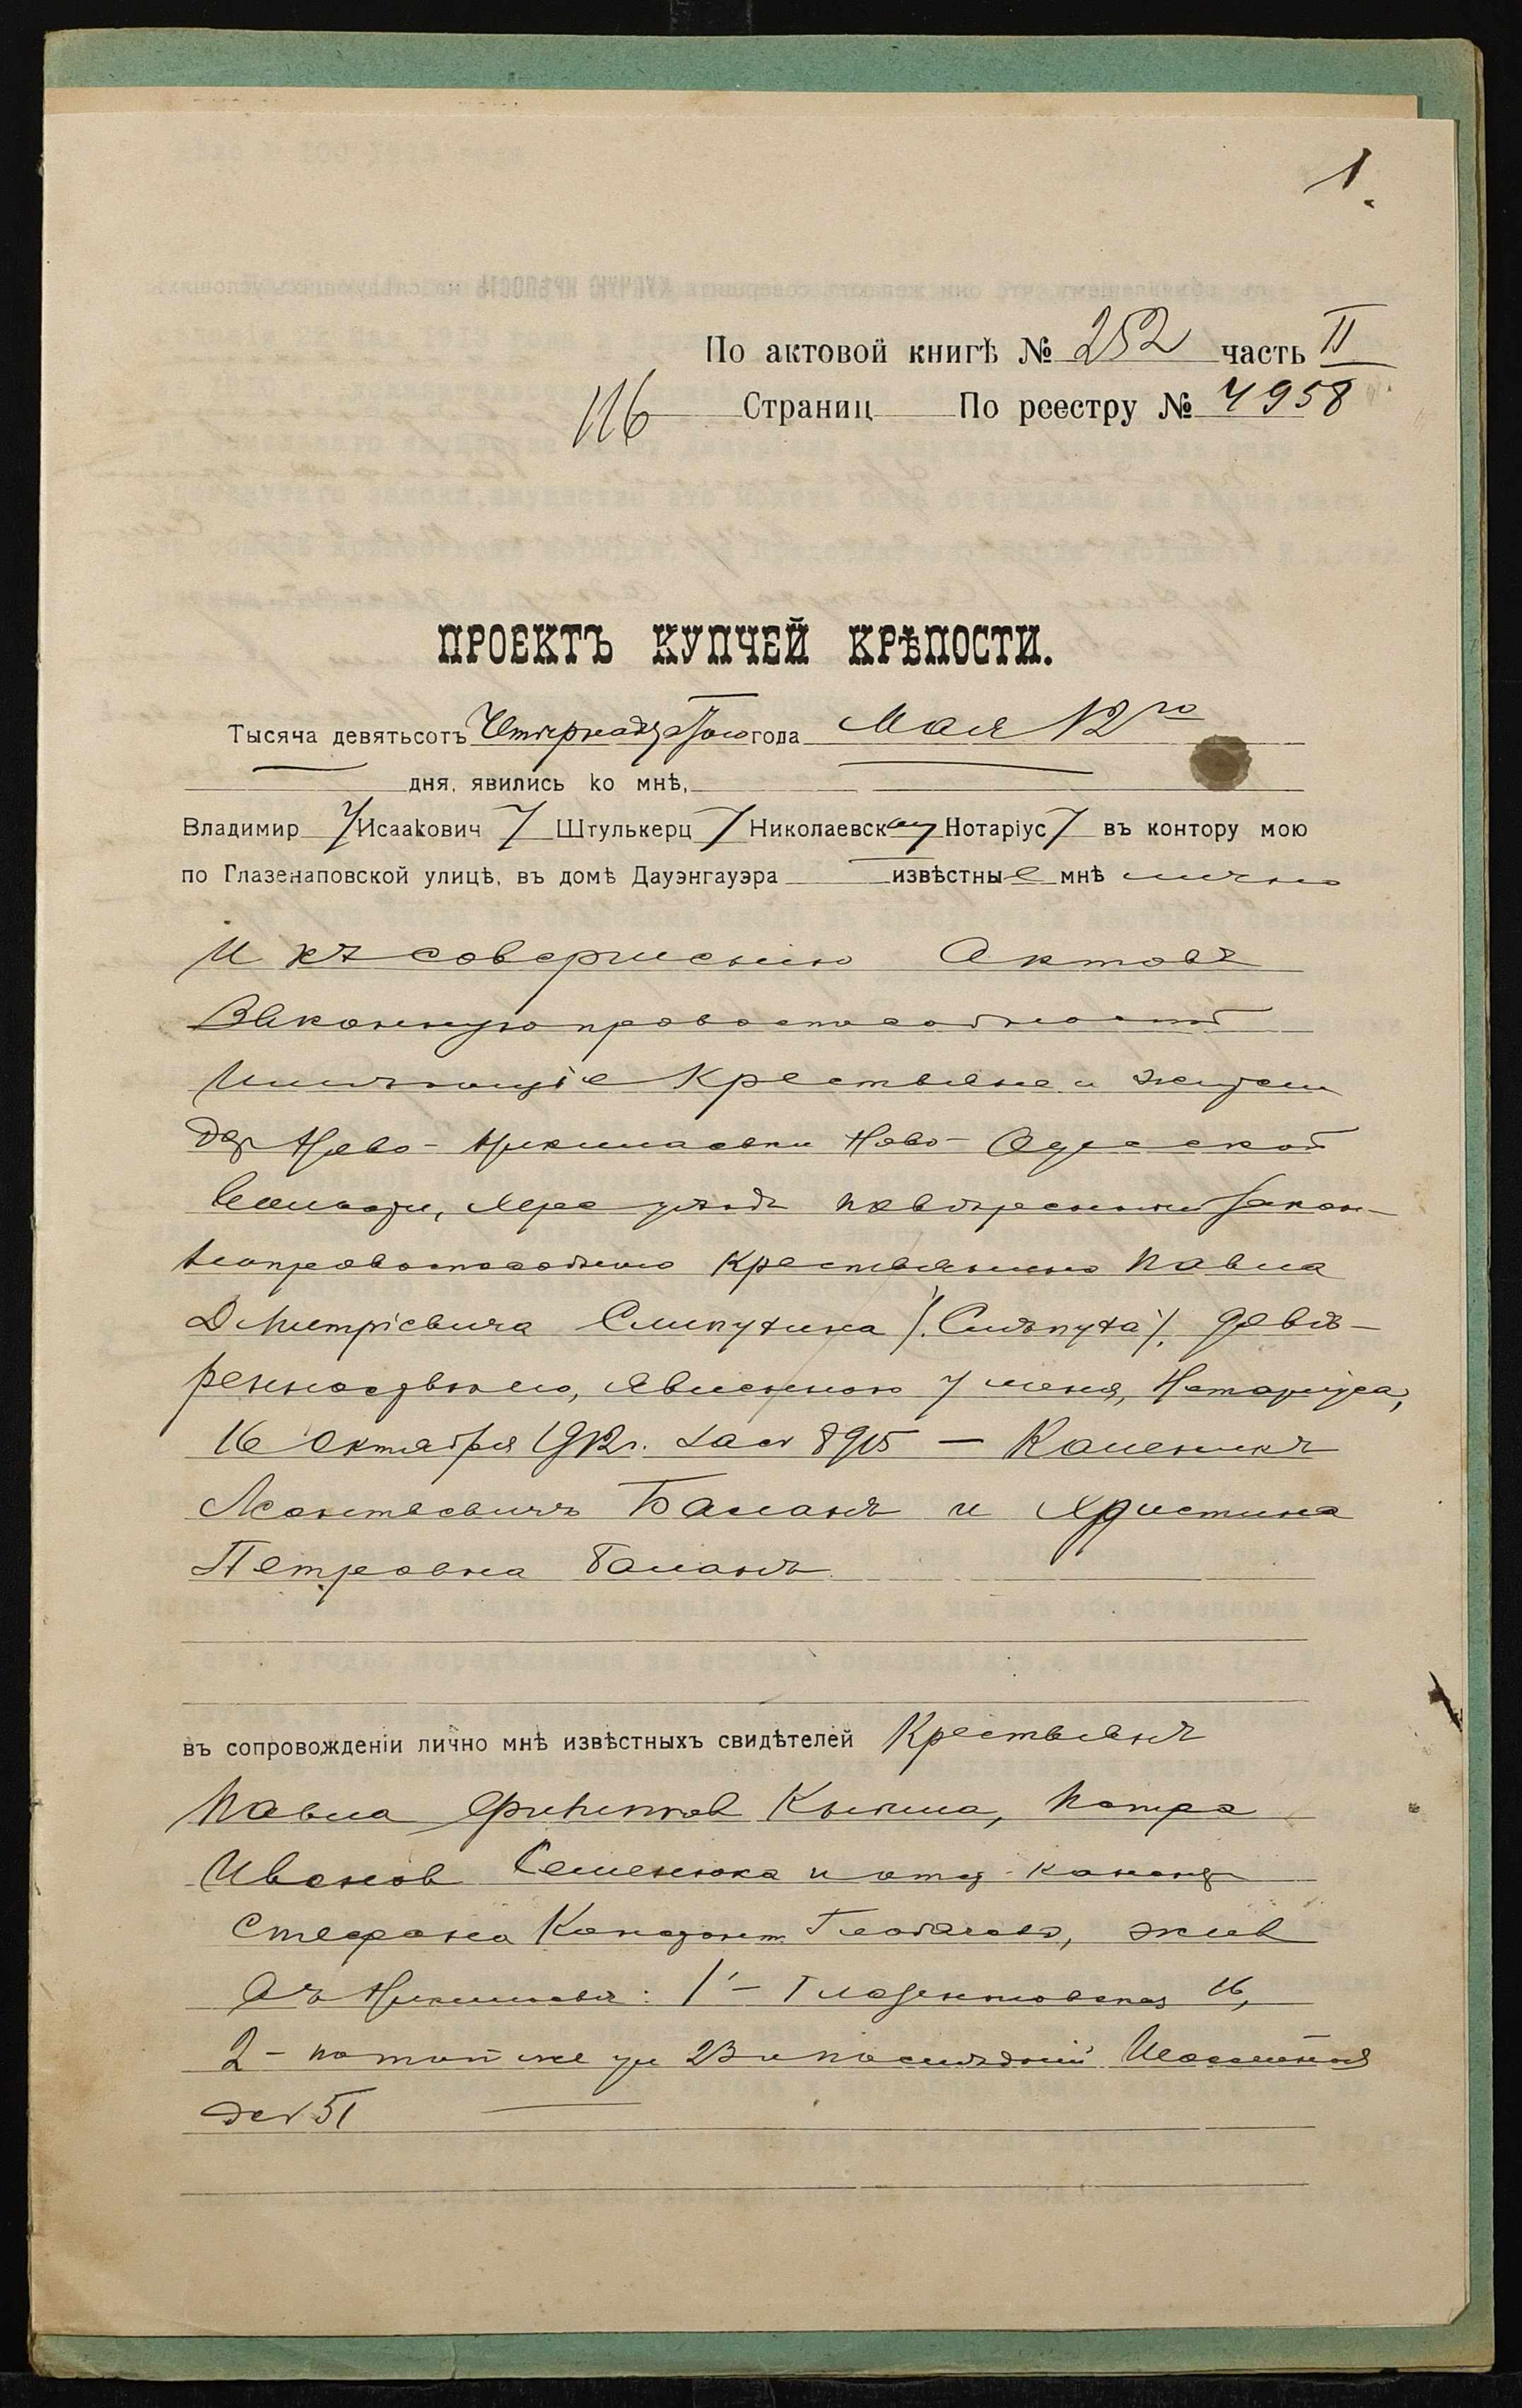 1.
По актовой книгѣ № 252 часть II
116 Страниц По реестру № 4958
ПРОЕКТЪ КУПЧЕЙ КРѢПОСТИ.
Тысяча девятьсотъ Четырнадцатаго года Мая 12го
дня, явились ко мнѣ,
Владимир Исаакович Штулькерц Николаевск Нотаріус въ контору мою
по Глазенаповской улицѣ, въ домѣ Дауэнгауэра извѣстные мнѣ лично
и къ совершенію актовъ
Законную правоспособность
имѣющіе Крестьяне и жители
дер Ново- Николаевки Ново- Одесской
волости, Херс уѣзда повѣренный закон-
ноправоспособнаго Крестьянина Павла
Дмитріевича Слипухина /.Слѣпуха/. довѣ-
ренностью, явленною у меня, Нотаріуса,
16 Октября 1912г. за № 8915 — Каленикъ
Леонтьевичъ Баланъ и Христина
Петровна Баланъ
въ сопровожденіи лично мнѣ извѣстныхъ свидѣтелей Крестьянъ
Павла Филиппов Петра
Иванов Семенюка и
Стефана Констант. жив
въ Николаевѣ: 1- Глазенаповская 16,
2- по той же ул 23 и послѣдній
д № 51